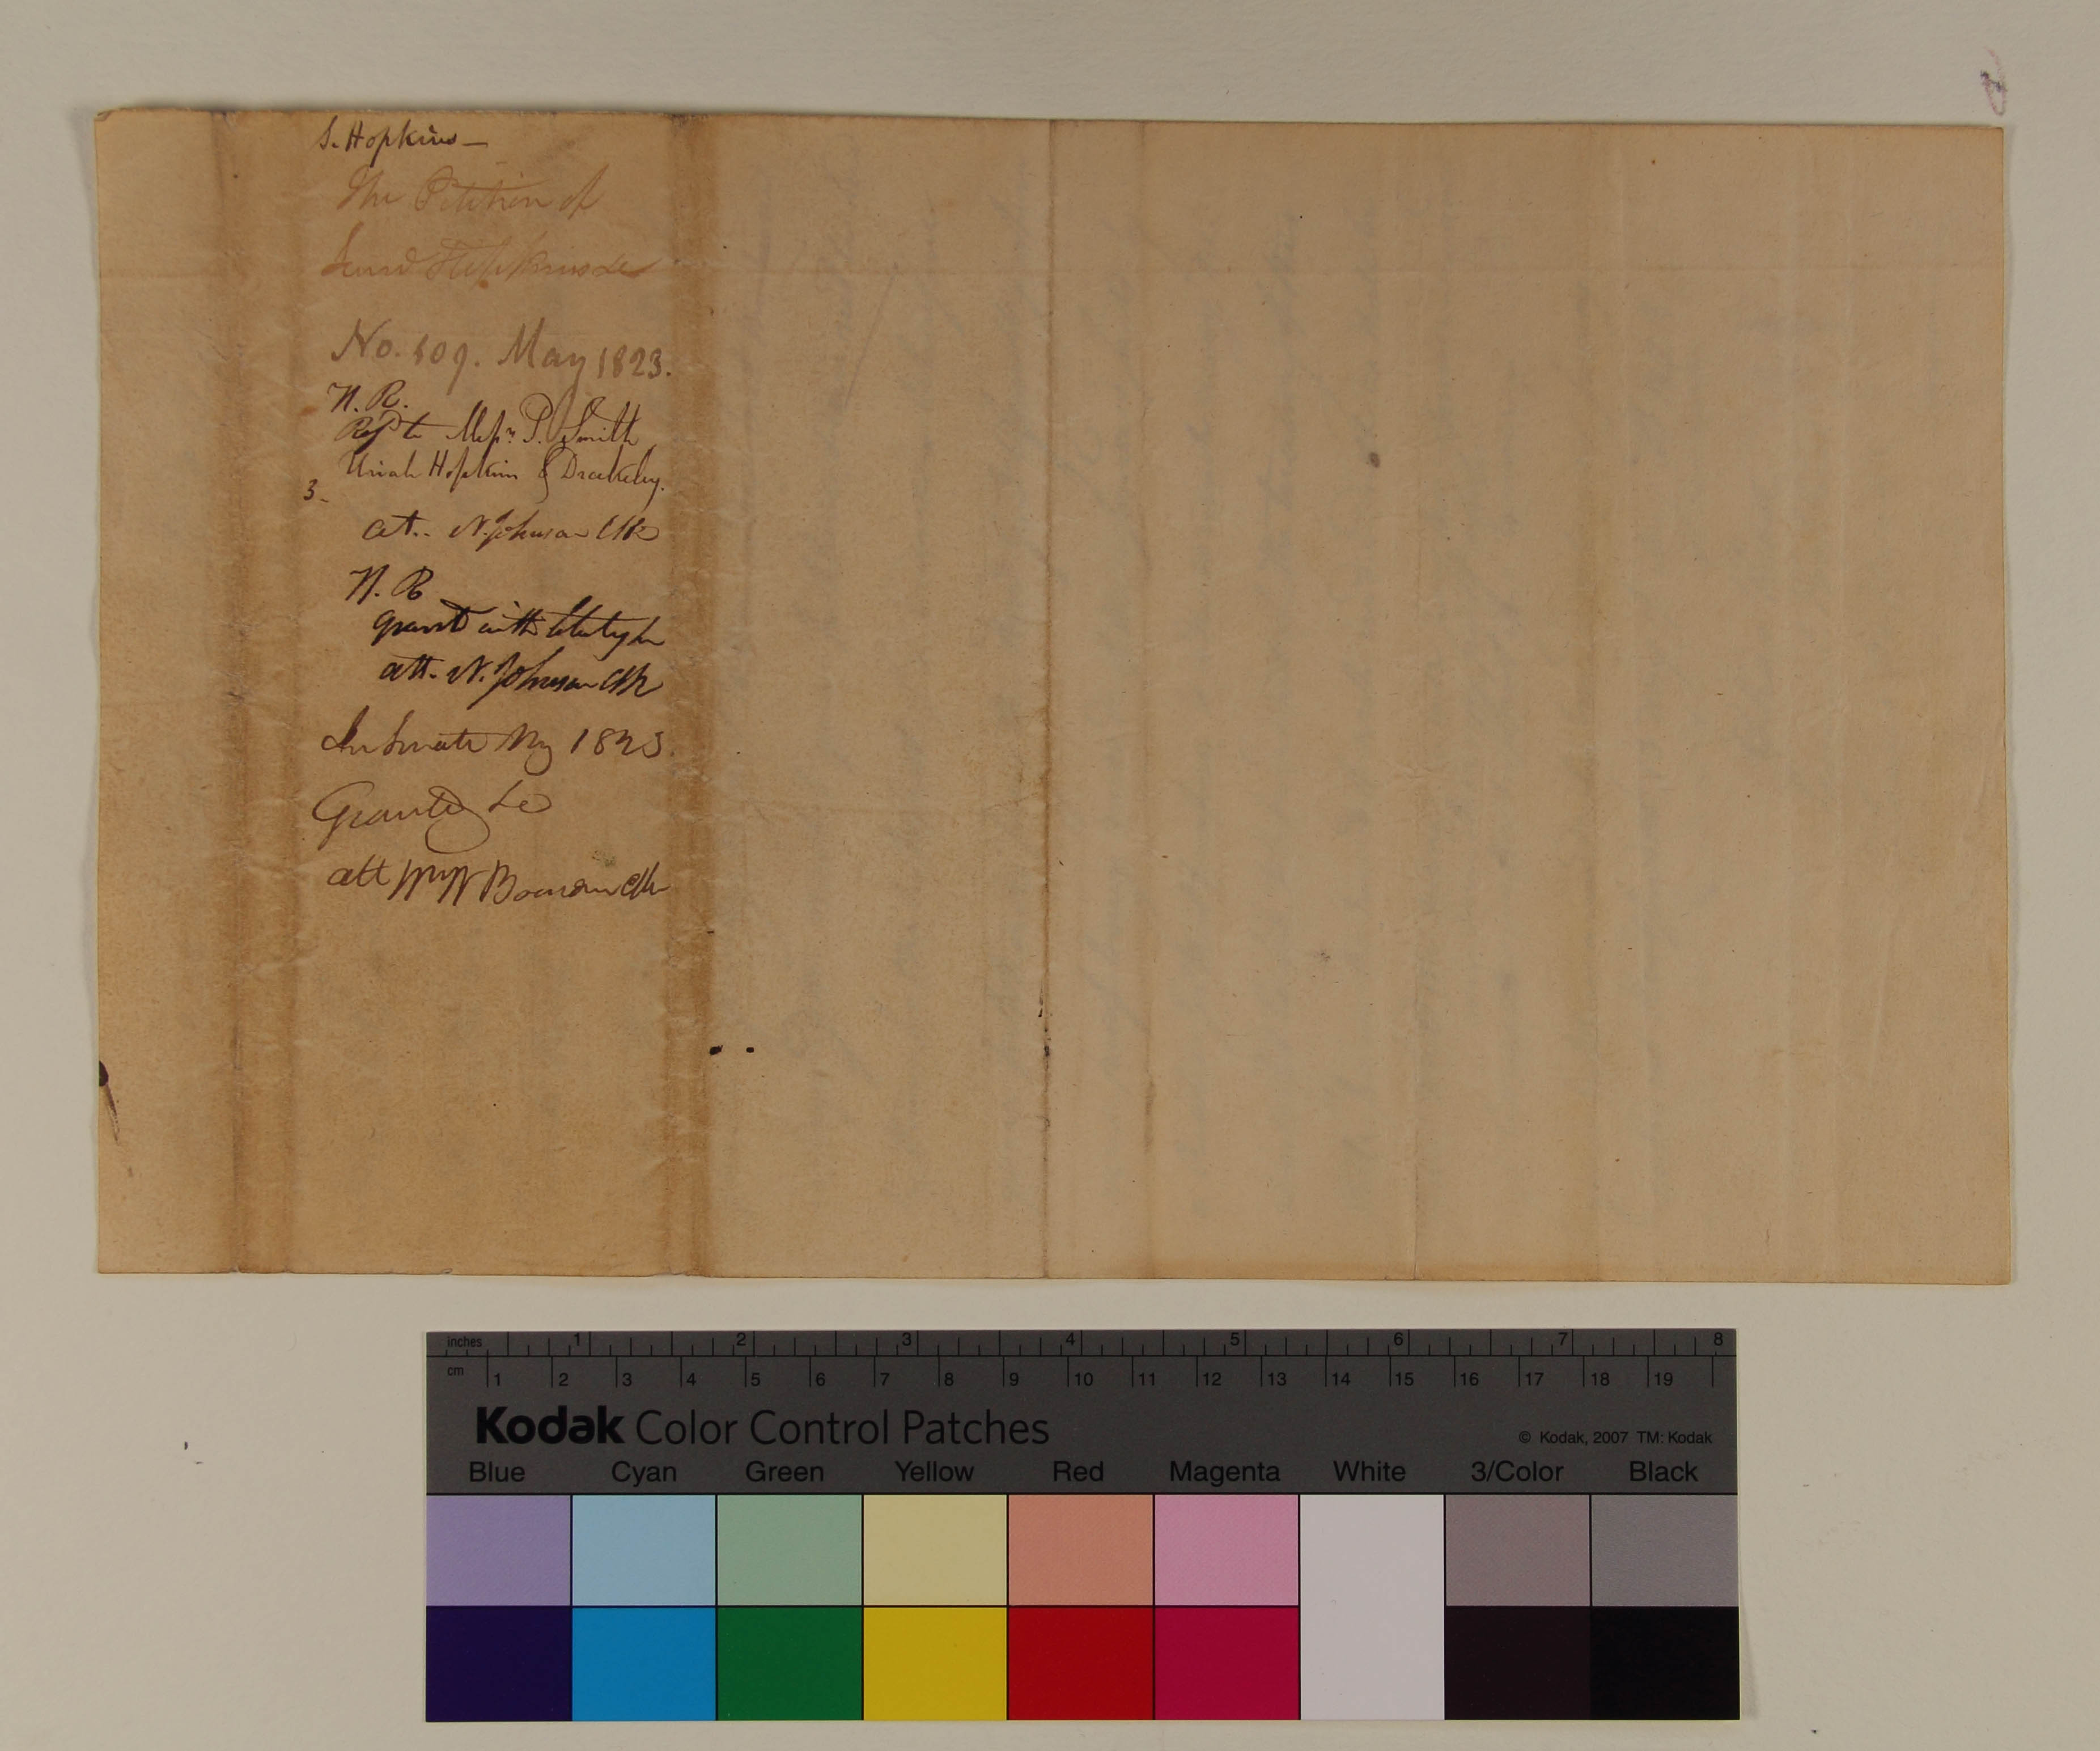 S. Hopkins—
The Petition of
Hopkins &c
No. 509. May 1823.
H. R.
Refd to Messrs. P. Smith
Uriah Hopkins & Drakeley.
3-
att.. N. Johnson Clk
H. R
grant with
att. N. Johnson Clk
In Senate My 1823.
Granted &c
att Clk
inches 1 2 3 4 5 6 7 8
cm 1 2 3 4 5 6 7 8 9 10 11 12 13 14 15 16 17 18 19
Kodak Color Control Patches
© Kodak, 2007 TM: Kodak
Blue Cyan Green Yellow Red Magenta White 3/Color Black